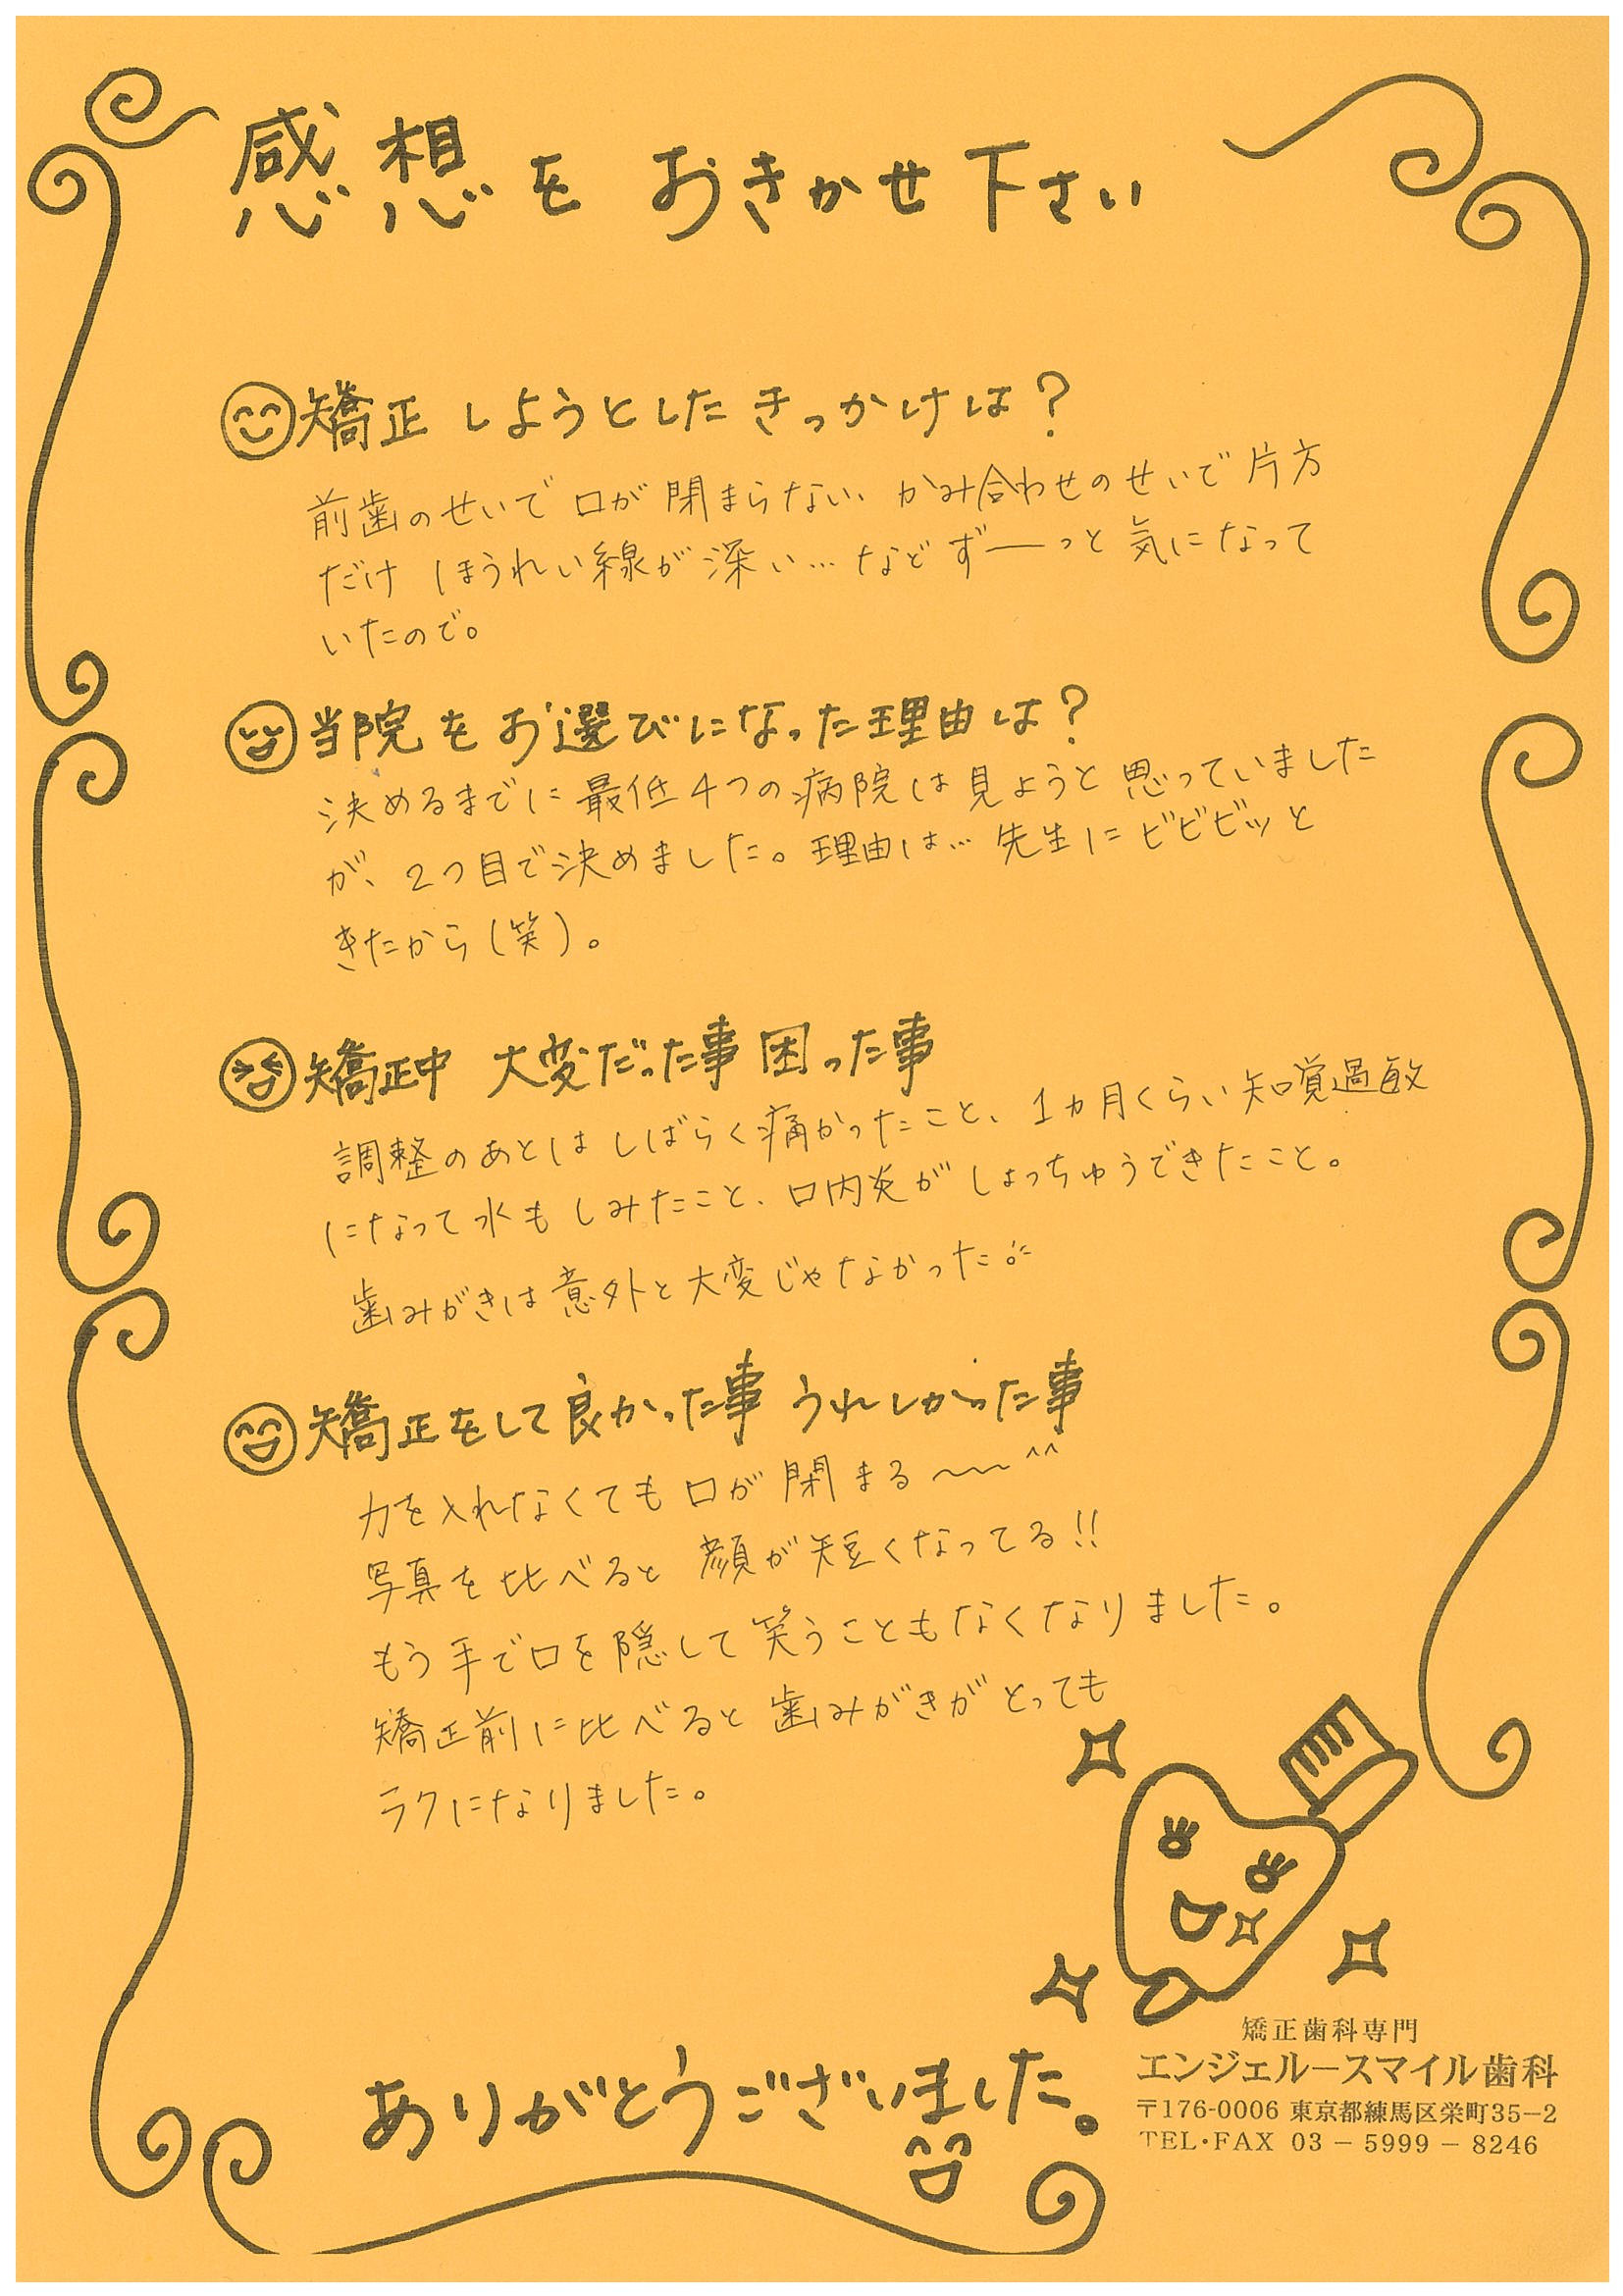 感想を おきかせ下さい
矯正 しようとした きっかけは？
前歯のせいで 口が 閉まらない、かみ合わせのせいで 片方
だけ ほうれい線が 深い…など ずーっと 気になって
いたので。
当院を お選びになった理由は？
決めるまでに 最低4つの病院は見ようと 思っていました
が、2つ目で決めました。理由は… 先生にビビビッと
きたから(笑)。
矯正中 大変だった事 困った事
調整のあとは しばらく痛かったこと、1ヵ月くらい知覚過敏
になって水も しみたこと、口内炎が しょっちゅうできたこと。
歯みがきは意外と大変じゃなかった
矯正をして良かった事 うれしかった事
力を入れなくても口が 閉まる～～^^
写真を比べると 顔が短くなってる!!
もう手で口を隠して笑うこともなくなりました。
矯正前に比べると歯みがきがとっても
ラクになりました。
ありがとうございました。
矯正歯科専門
エンジェルースマイル歯科
〒176-0006 東京都練馬区栄町35−2
TEL・FAX 03 − 5999 − 8246